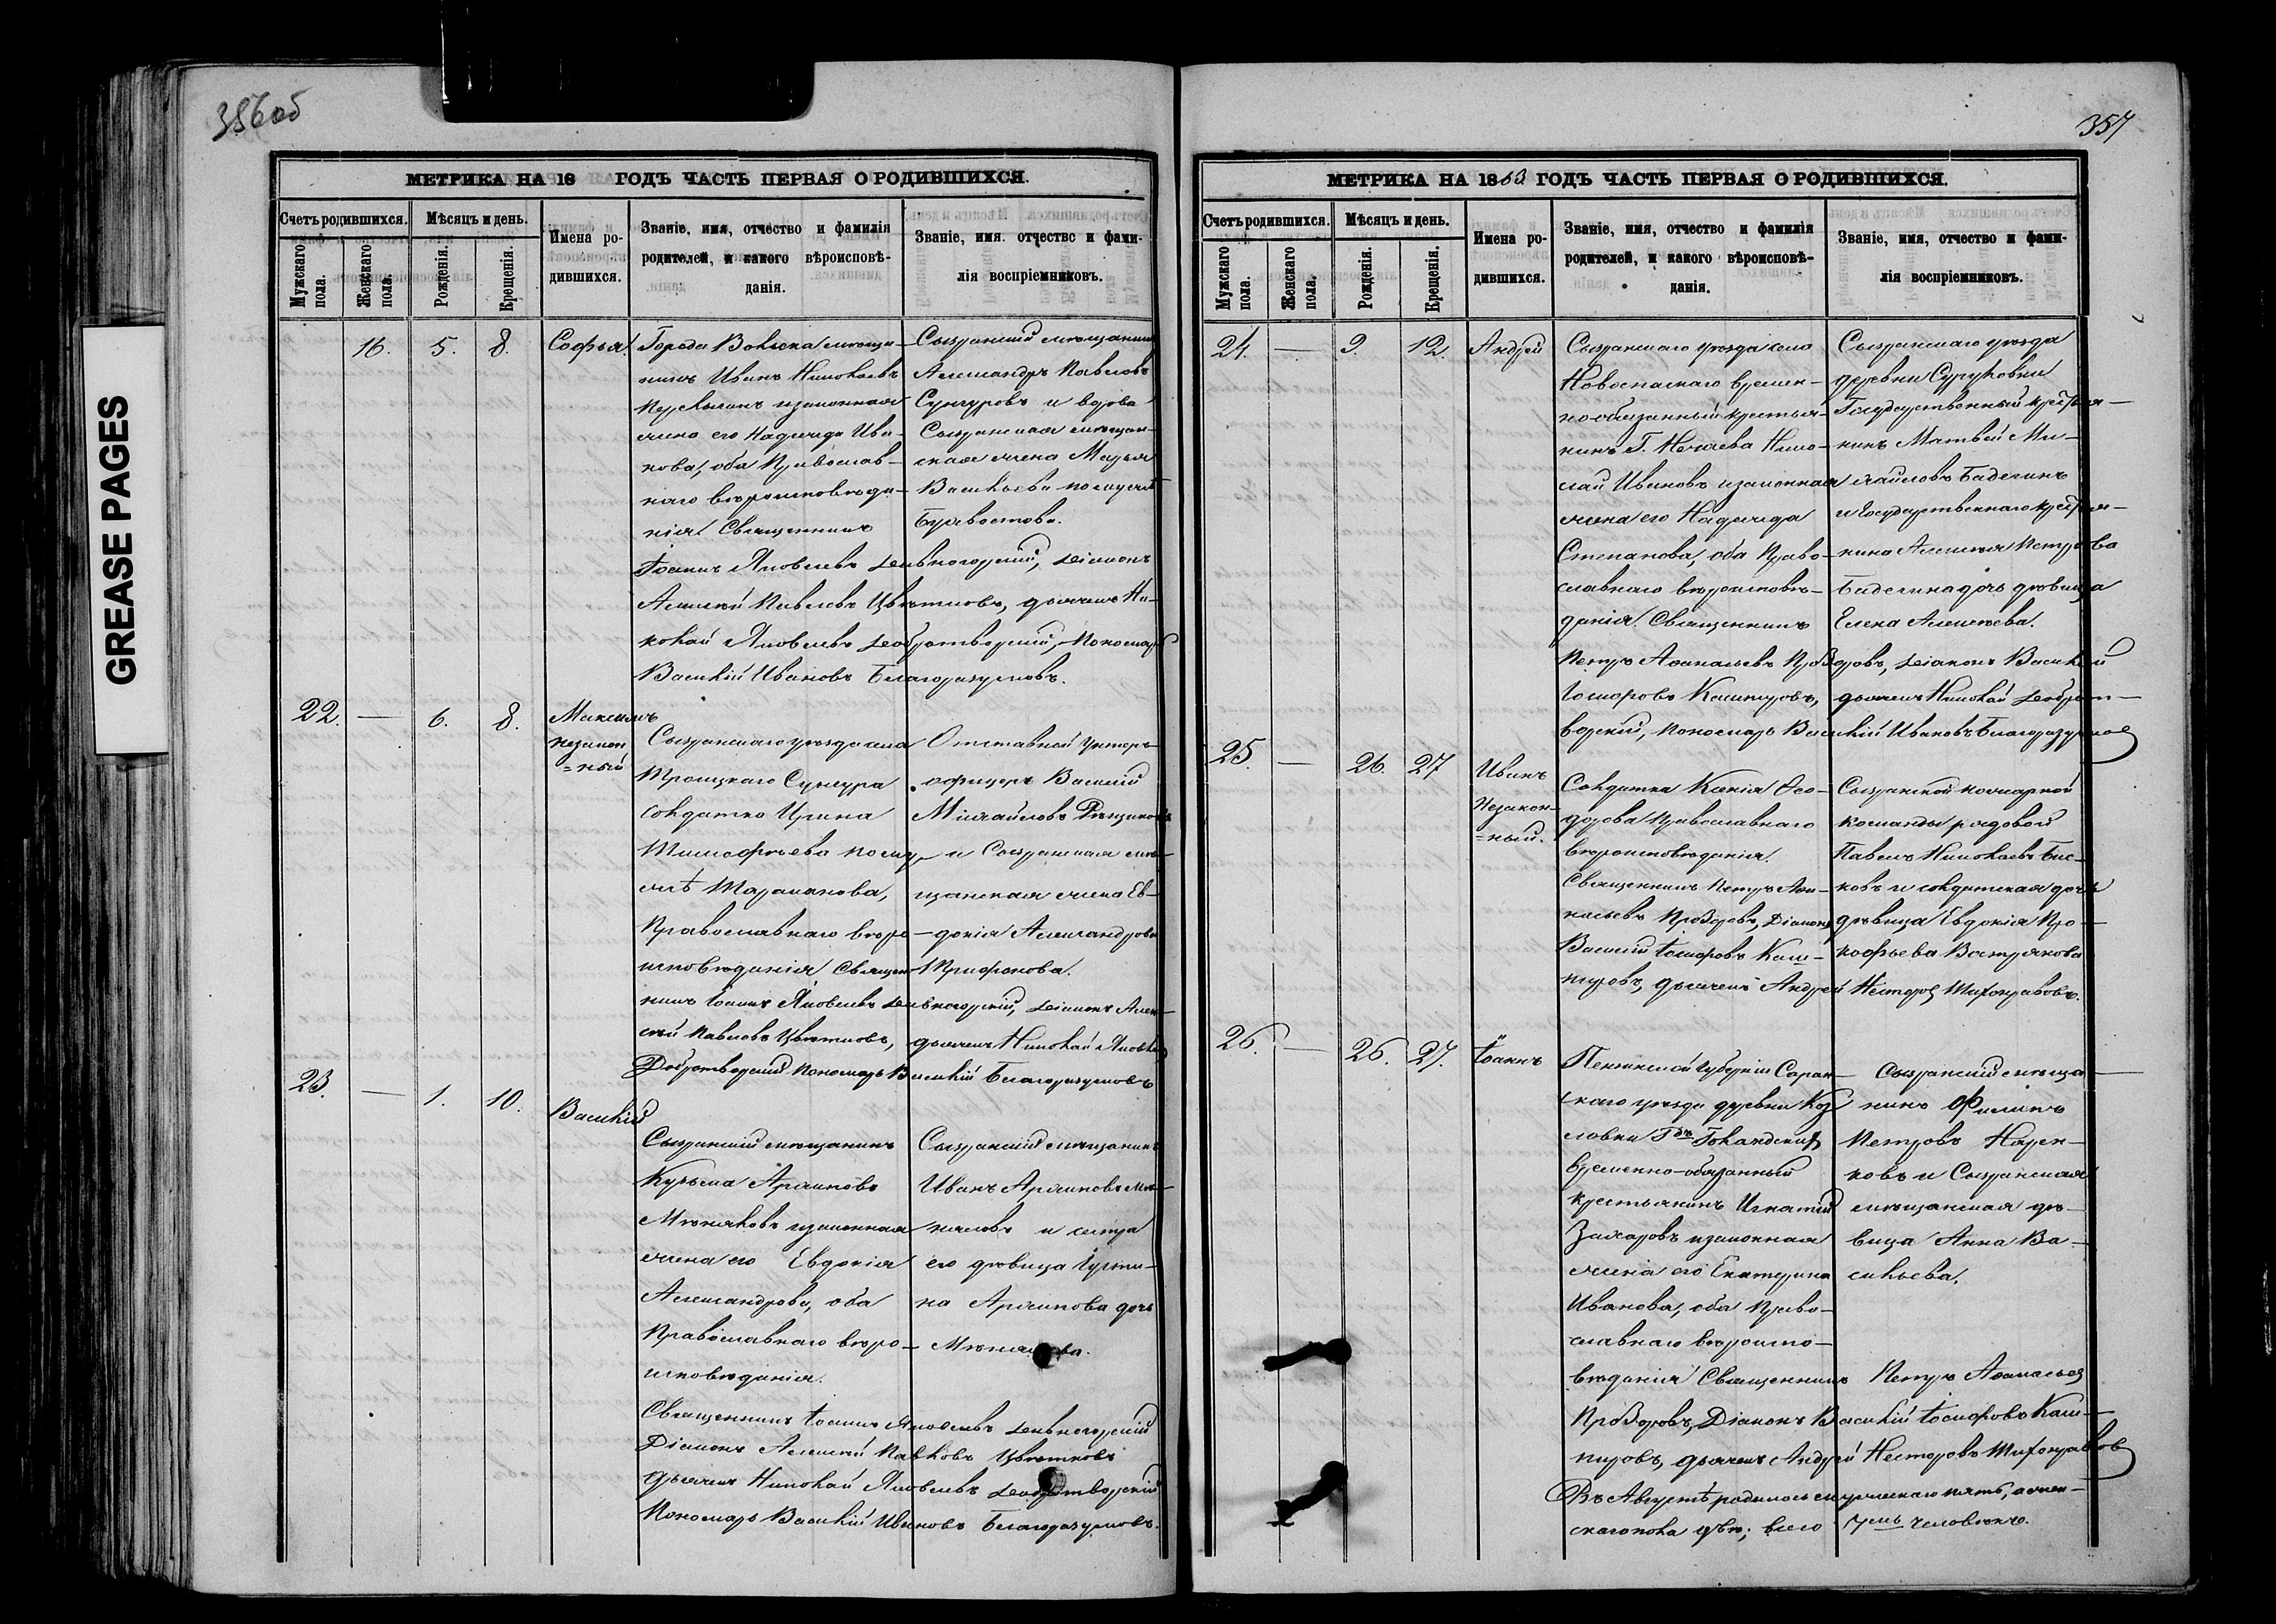 356об
МЕТРИКА НА 18 ГОДЪ ЧАСТЬ ПЕРВАЯ О РОДИВШИХСЯ.
Счетъ родившихся.
Мѣсяцъ и день.
Имена ро-
дившихся.
Званіе, имя, отчество и фамилія
родителей, и какого вѣроисповѣ-
данія.
Званіе, имя. отчество и фами-
лія воспріемниковъ.
Мужскаго пола.
Женскаго пола.
Рожденія.
Крещенія.
16. 5. 8. Софья.
Города Вольска мѣща-
нинъ Иванъ Николаевъ
и законная
жена его Надежда Ива-
нова, оба Православ-
наго вѣроисповѣда-
нія. Священникъ
Іоаннъ Яковлевъ Дивногорскій, Діаконъ
Алексѣй Павловъ Цвѣтковъ, дьячекъ Ни-
колай Яковлевъ Добротворскій, Пономарь
Василій Ивановъ Благоразумовъ.
Сызранскій мѣщанинъ
Александръ Павловъ
Сунгуровъ и вдова
Сызранская мѣщан-
ская жена Марья
Васильева по мужѣ
Буравостова.
22. — 6. 8. Максимъ
незакон
=ный
Сызранскаго уѣзда села
Троицкаго Сунгура
солдатка Ирина
Тимофѣева по му-
жѣ Тараканова,
Православнаго вѣро-
исповѣданія Священ-
никъ Іоаннъ Яковлевъ Дивногорскій, Діаконъ Алек-
сѣй Павловъ Цвѣтковъ, дьячекъ Николай Яковлевъ
Добротворскій Пономарь Василій Благоразумовъ
Отставной Унтеръ-
офицеръ Василій
Михайловъ
и Сызранская мѣ-
щанская жена Ев-
докія Александрова
Трифонова.
23. — 1. 10. Василій
Сызранскій мѣщанинъ
Кузьма Архиповъ
Мѣняковъ и законная
жена его Евдокія
Александрова, оба
Православнаго вѣро-
исповѣданія.
Священникъ Іоаннъ Яковлевъ Дивногорскій
Діаконъ Алексѣй Павловъ Цвѣтковъ
дьячекъ Николай Яковлевъ Добротворскій
Пономарь Василій Ивановъ Благоразумовъ.
Сызранскій мѣщанинъ
Иванъ Архиповъ Мѣ-
няковъ и сестра
его дѣвица Іусти-
на Архипова дочь
357
МЕТРИКА НА 1863 ГОДЪ ЧАСТЬ ПЕРВАЯ О РОДИВШИХСЯ.
Счетъ родившихся.
Мѣсяцъ и день.
Имена ро-
дившихся.
Званіе, имя, отчество и фамилія
родителей, и какого вѣроисповѣ-
данія.
Званіе, имя, отчество и фами-
лія воспріемниковъ.
Мужскаго пола.
Женскаго пола.
Рожденія.
Крещенія.
24. — 9. 12. Андрей
Сызранскаго уѣзда села
Новоспаскаго времен-
но-обязанный крестья-
нинъ Г. Нечаева Нико-
лай Ивановъ и законная
жена его Надежда
Степанова, оба Право-
славнаго вѣроисповѣ-
данія. Священникъ
Петръ Аѳанасьевъ Прозоровъ, Діаконъ Василій
Іосифовъ Каштуровъ, дьячекъ Николай Доброт-
ворскій, Пономарь Василій Ивановъ Благоразумовъ
Сызранскаго уѣзда
деревни
Государственный крестья-
нинъ Матвѣй Ми-
хайловъ Баделинъ
и Государственнаго крестья-
нина Алексѣя Петрова
Баделина дочь дѣвица
Елена Алексѣева.
25. — 26. 27 Иванъ
Незакон-
=ный.
Солдатка Ксенія Ѳео-
дорова Православнаго
вѣроисповѣданія.
Священникъ Петръ Аѳа-
насьевъ Прозоровъ, Діаконъ
Василій Іосифовъ Каш-
туровъ, дьячекъ Андрей Несторовъ Тихонравовъ.
Сызранской пожарной
команды рядовой
Павелъ Николаевъ Бы-
ковъ и солдатская дочь
дѣвица Евдокія Про-
кофьева Вострякова
26. — 26. 27. Іоаннъ
Пензенской Губерніи Саран-
скаго уѣзда деревни Коз
ловки
временно-обязанный
крестьянинъ Игнатій
Захаровъ и законная
жена его Екатерина
Иванова, оба Право-
славнаго вѣроиспо-
вѣданія Священникъ Петръ Аѳанасьевъ
Прозоровъ, Діаконъ Василій Іосифовъ Каш-
туровъ, дьячекъ Андрей Несторовъ Тихонравовъ
Сызранскій мѣща-
нинъ Филипъ
Петровъ
ковъ и Сызранская
мѣщанская дѣ-
вица Анна Ва-
сильева.
Въ Августѣ родилось мужескаго пять, а жен-
скаго пола двѣ; всего 7мь человѣкъ.
GREASE PAGES